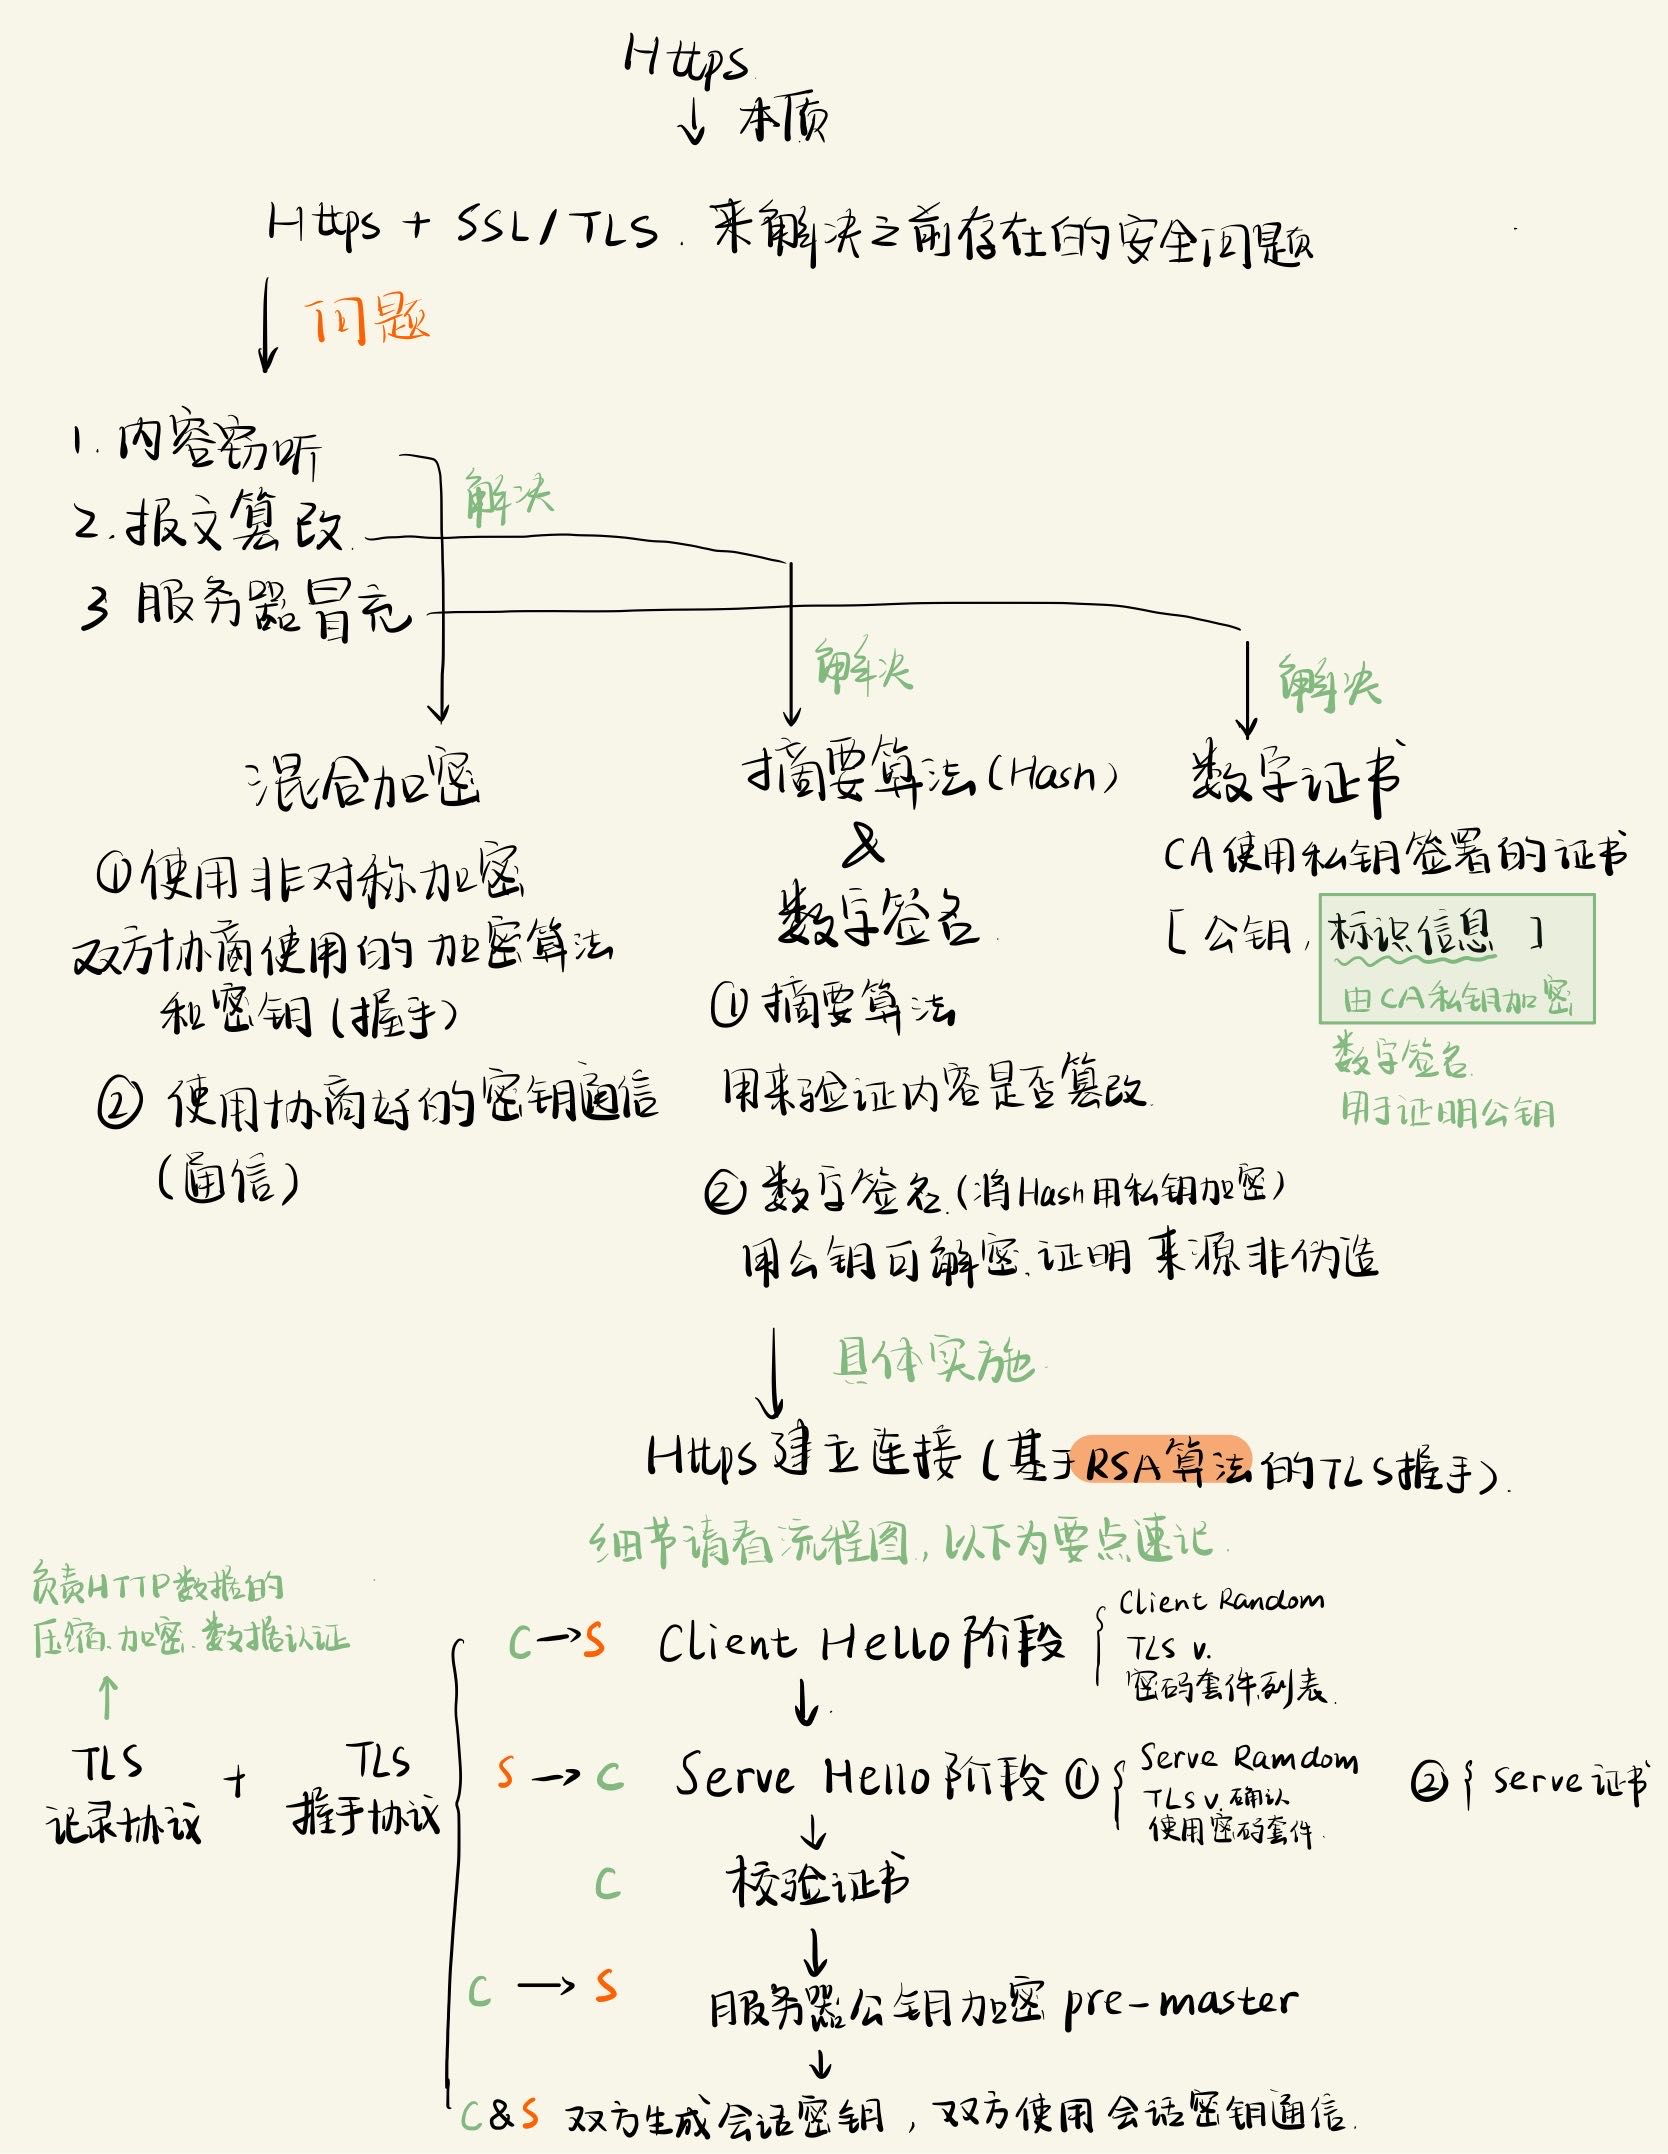 Https
本质
Https + SSL/TLS. 来解决之前存在的安全问题
问题
1. 内容窃听
2. 报文篡改
3 服务器冒充
解决
解决
解决
混合加密
①使用非对称加密
双方协商使用的加密算法
和密钥(握手)
② 使用协商好的密钥通信
(通信)
摘要算法(Hash)
&
数字签名
① 摘要算法
用来验证内容是否篡改
② 数字签名(将Hash用私钥加密)
用公钥可解密.证明来源非伪造
数字证书
CA使用私钥签署的证书
[公钥,标识信息 ]
由CA私钥加密
数字签名
用于证明公钥
具体实施
Https 建立连接(基于RSA算法的TLS握手).
细节请看流程图,以下为要点速记.
负责HTTP数据的
压缩.加密.数据认证
TLS
记录协议
+
TLS
握手协议
C→S Client Hello阶段
Client Random
TLS v.
密码套件列表.
S→C Serve Hello阶段 ①
Serve Ramdom
TLS v.确认
使用密码套件.
② Serve证书
C 校验证书
C→S 服务器公钥加密 pre-master
C&S 双方生成会话密钥,双方使用会话密钥通信.